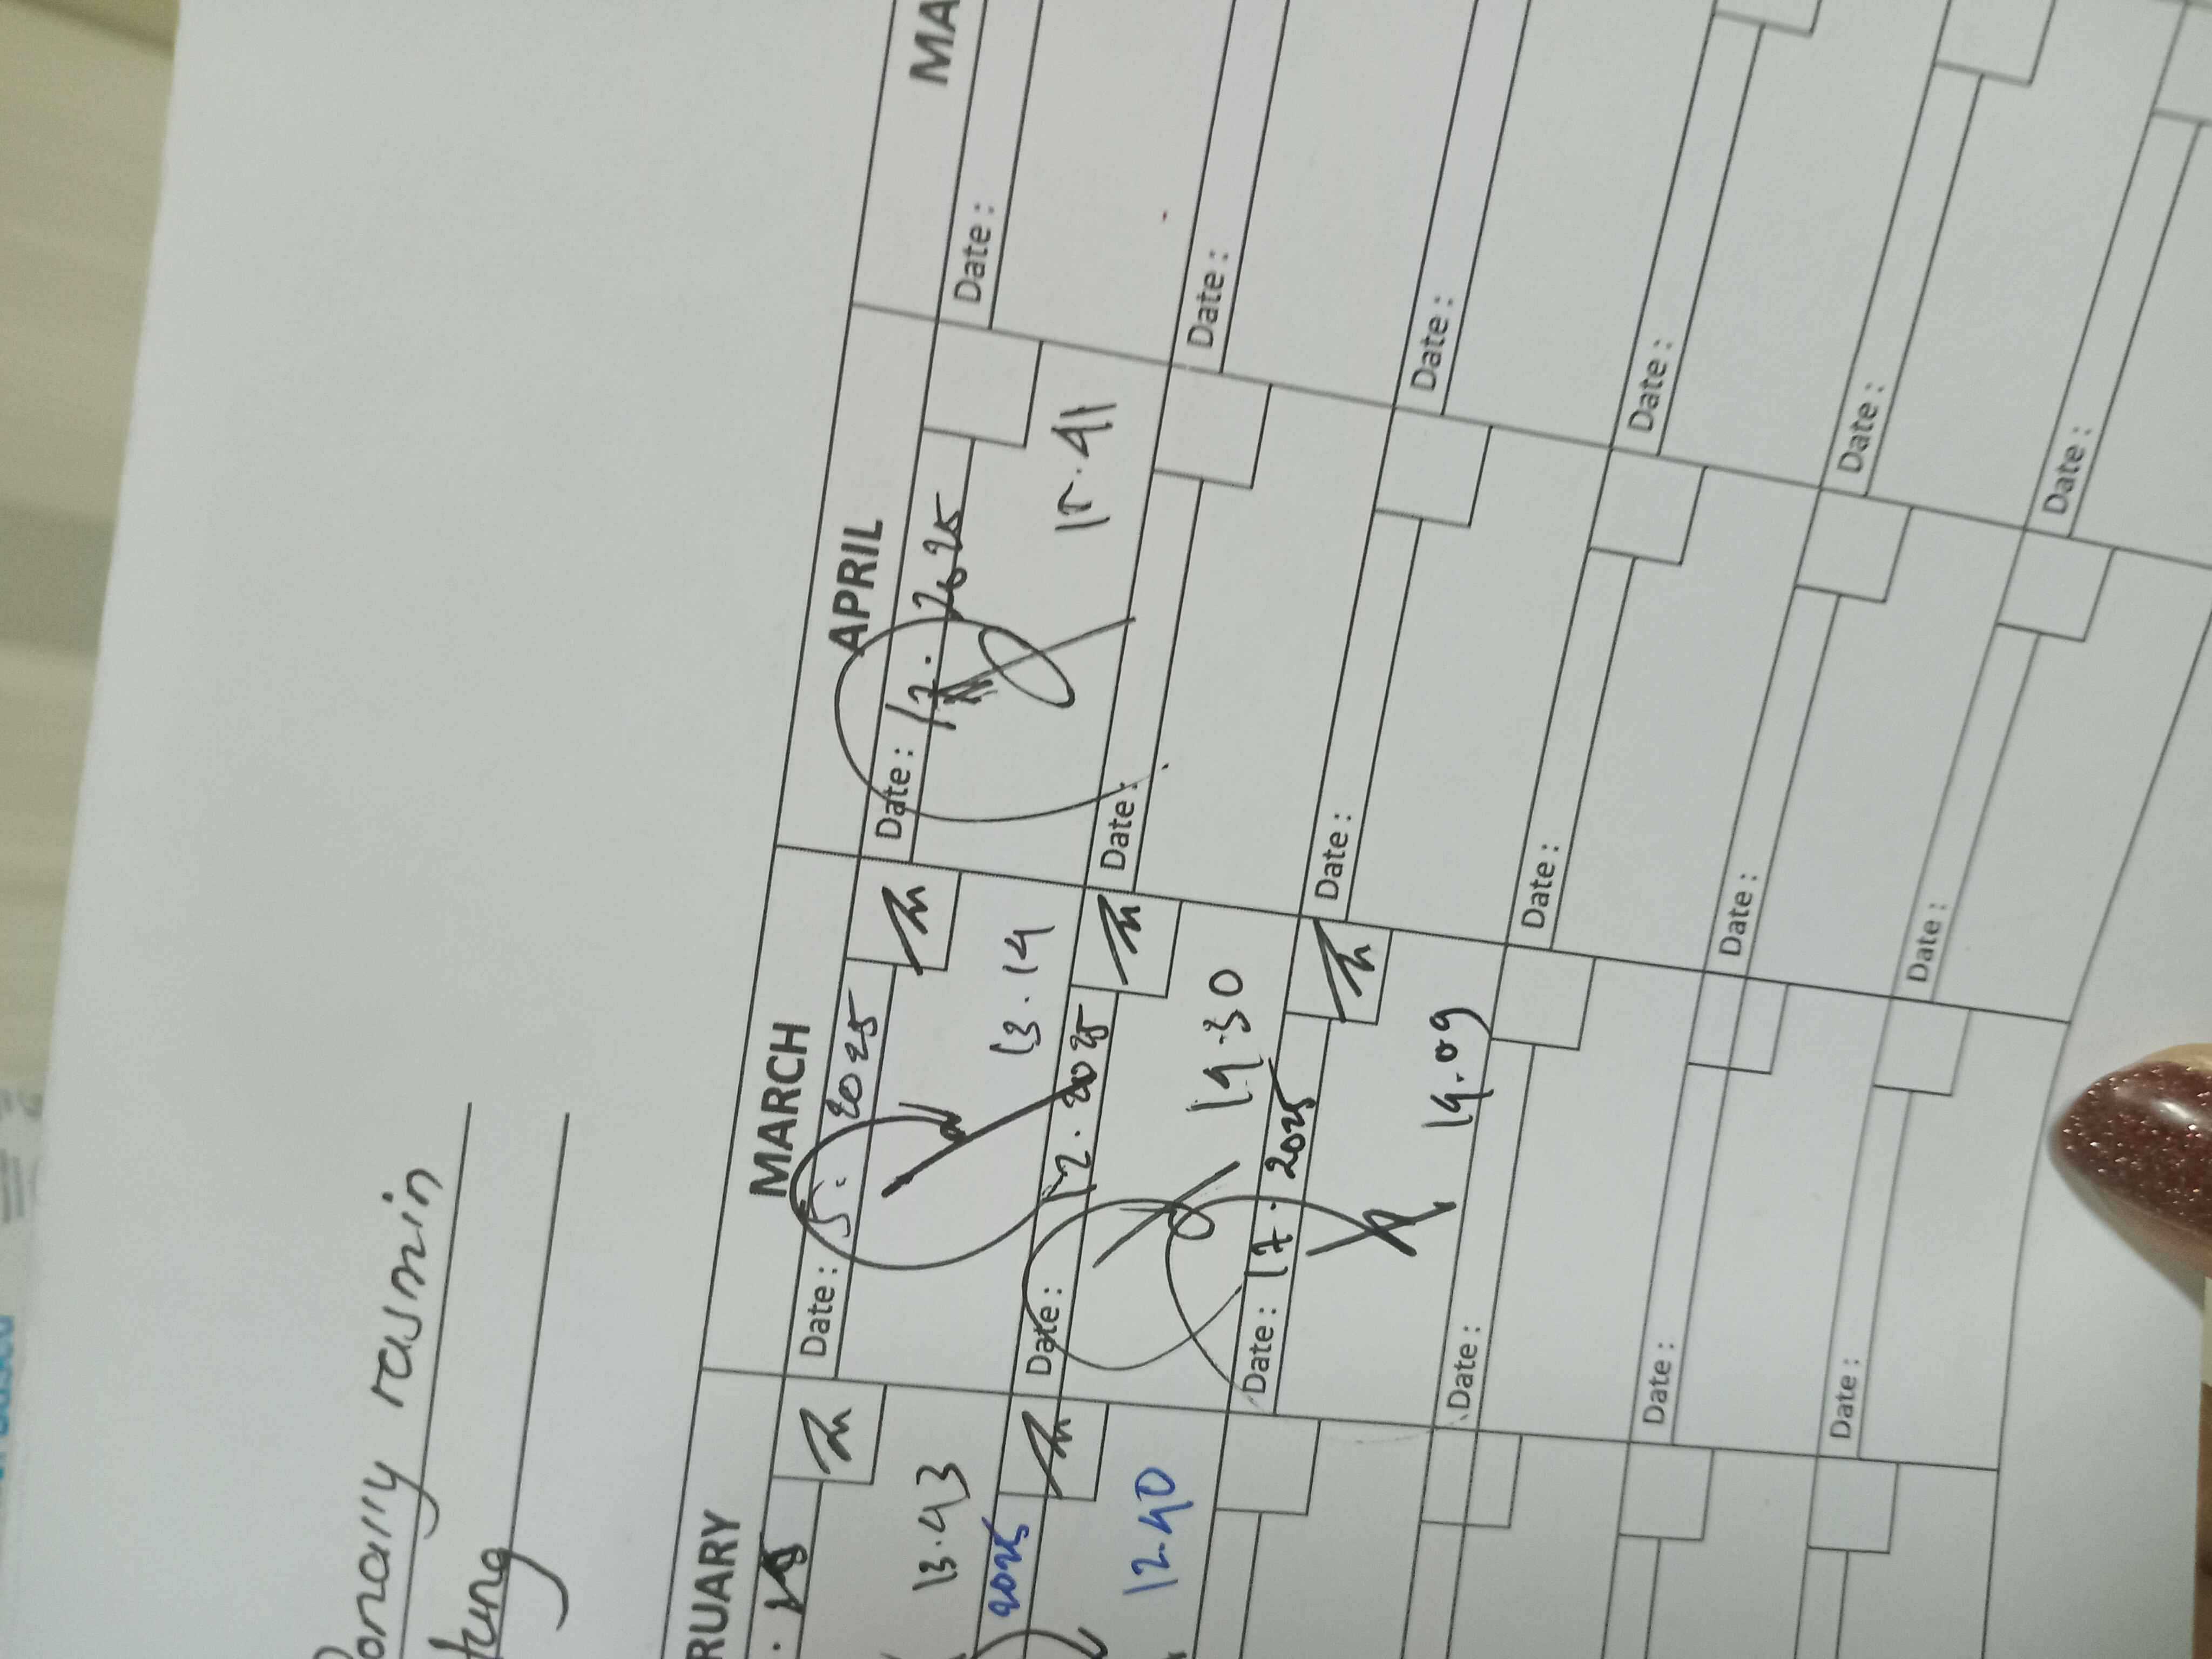 rasmin
MARCH
APRIL
MA
Date: 5. 2025
13.14
Date: 12. 2025
14.30
Date: 17. 2025
14.09
Date:
Date:
Date:
Date: 17. 2025
15.41
Date:
Date:
Date:
Date:
Date:
Date:
Date:
Date:
Date:
Date:
Date:
RUARY
13.43
2025
12.40